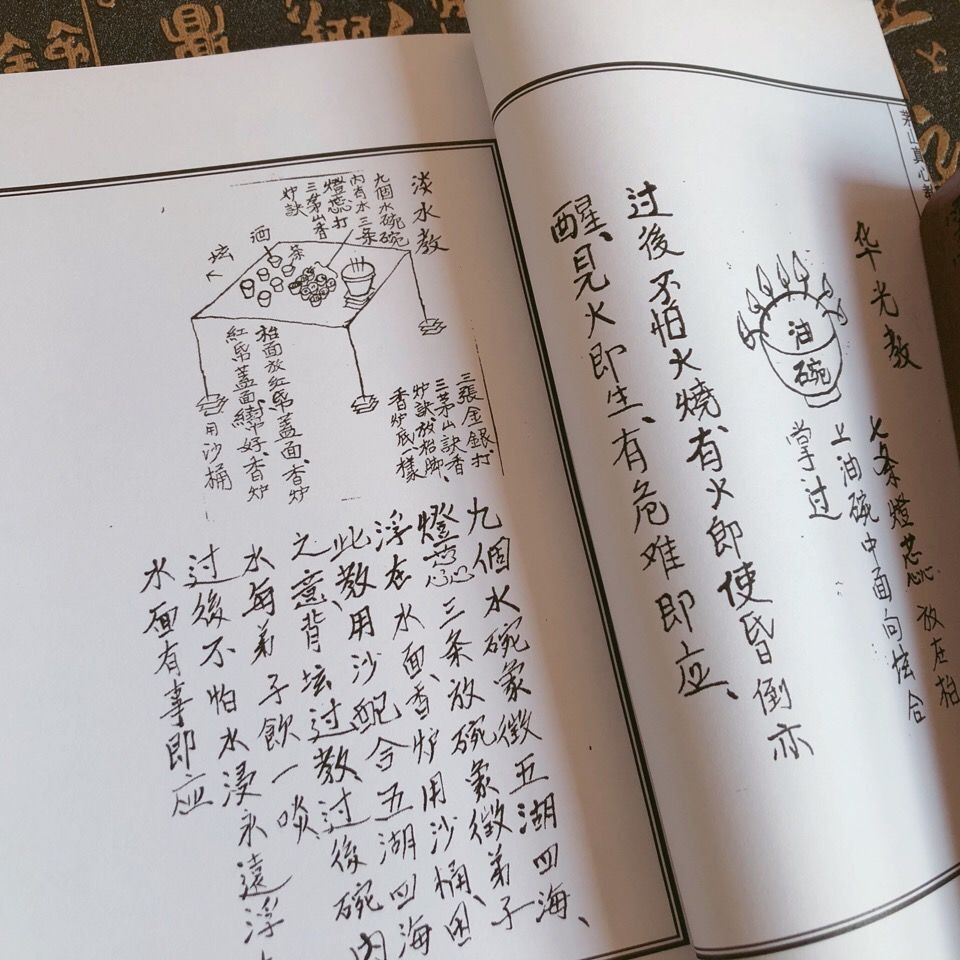 茅山真心教
华光教
油
碗
七条燈蕊放在枱
上油碗中面向坛合
掌过
过後不怕火燒、有火即使昏倒亦
醒、見火即生、有危难即应、
淡水教
九個水碗碗
内有水三条
燈蕊打
三茅山香
炉訣
酒
茶
坛
三張金銀、打
三茅山訣香
炉訣放枱脚、
香炉底一樣
枱面放紅帋蓋面、香炉
紅帋蓋面、綁好、香炉
用沙桶
九個水碗象徵五湖四海、
燈蕊三条放碗象徵弟子
浮在水面、香炉用沙桶、因
此教用沙配合五湖四海
之意、背坛过教、过後碗内
水每弟子飲一啖
过後不怕水浸永遠浮
水面有事即应